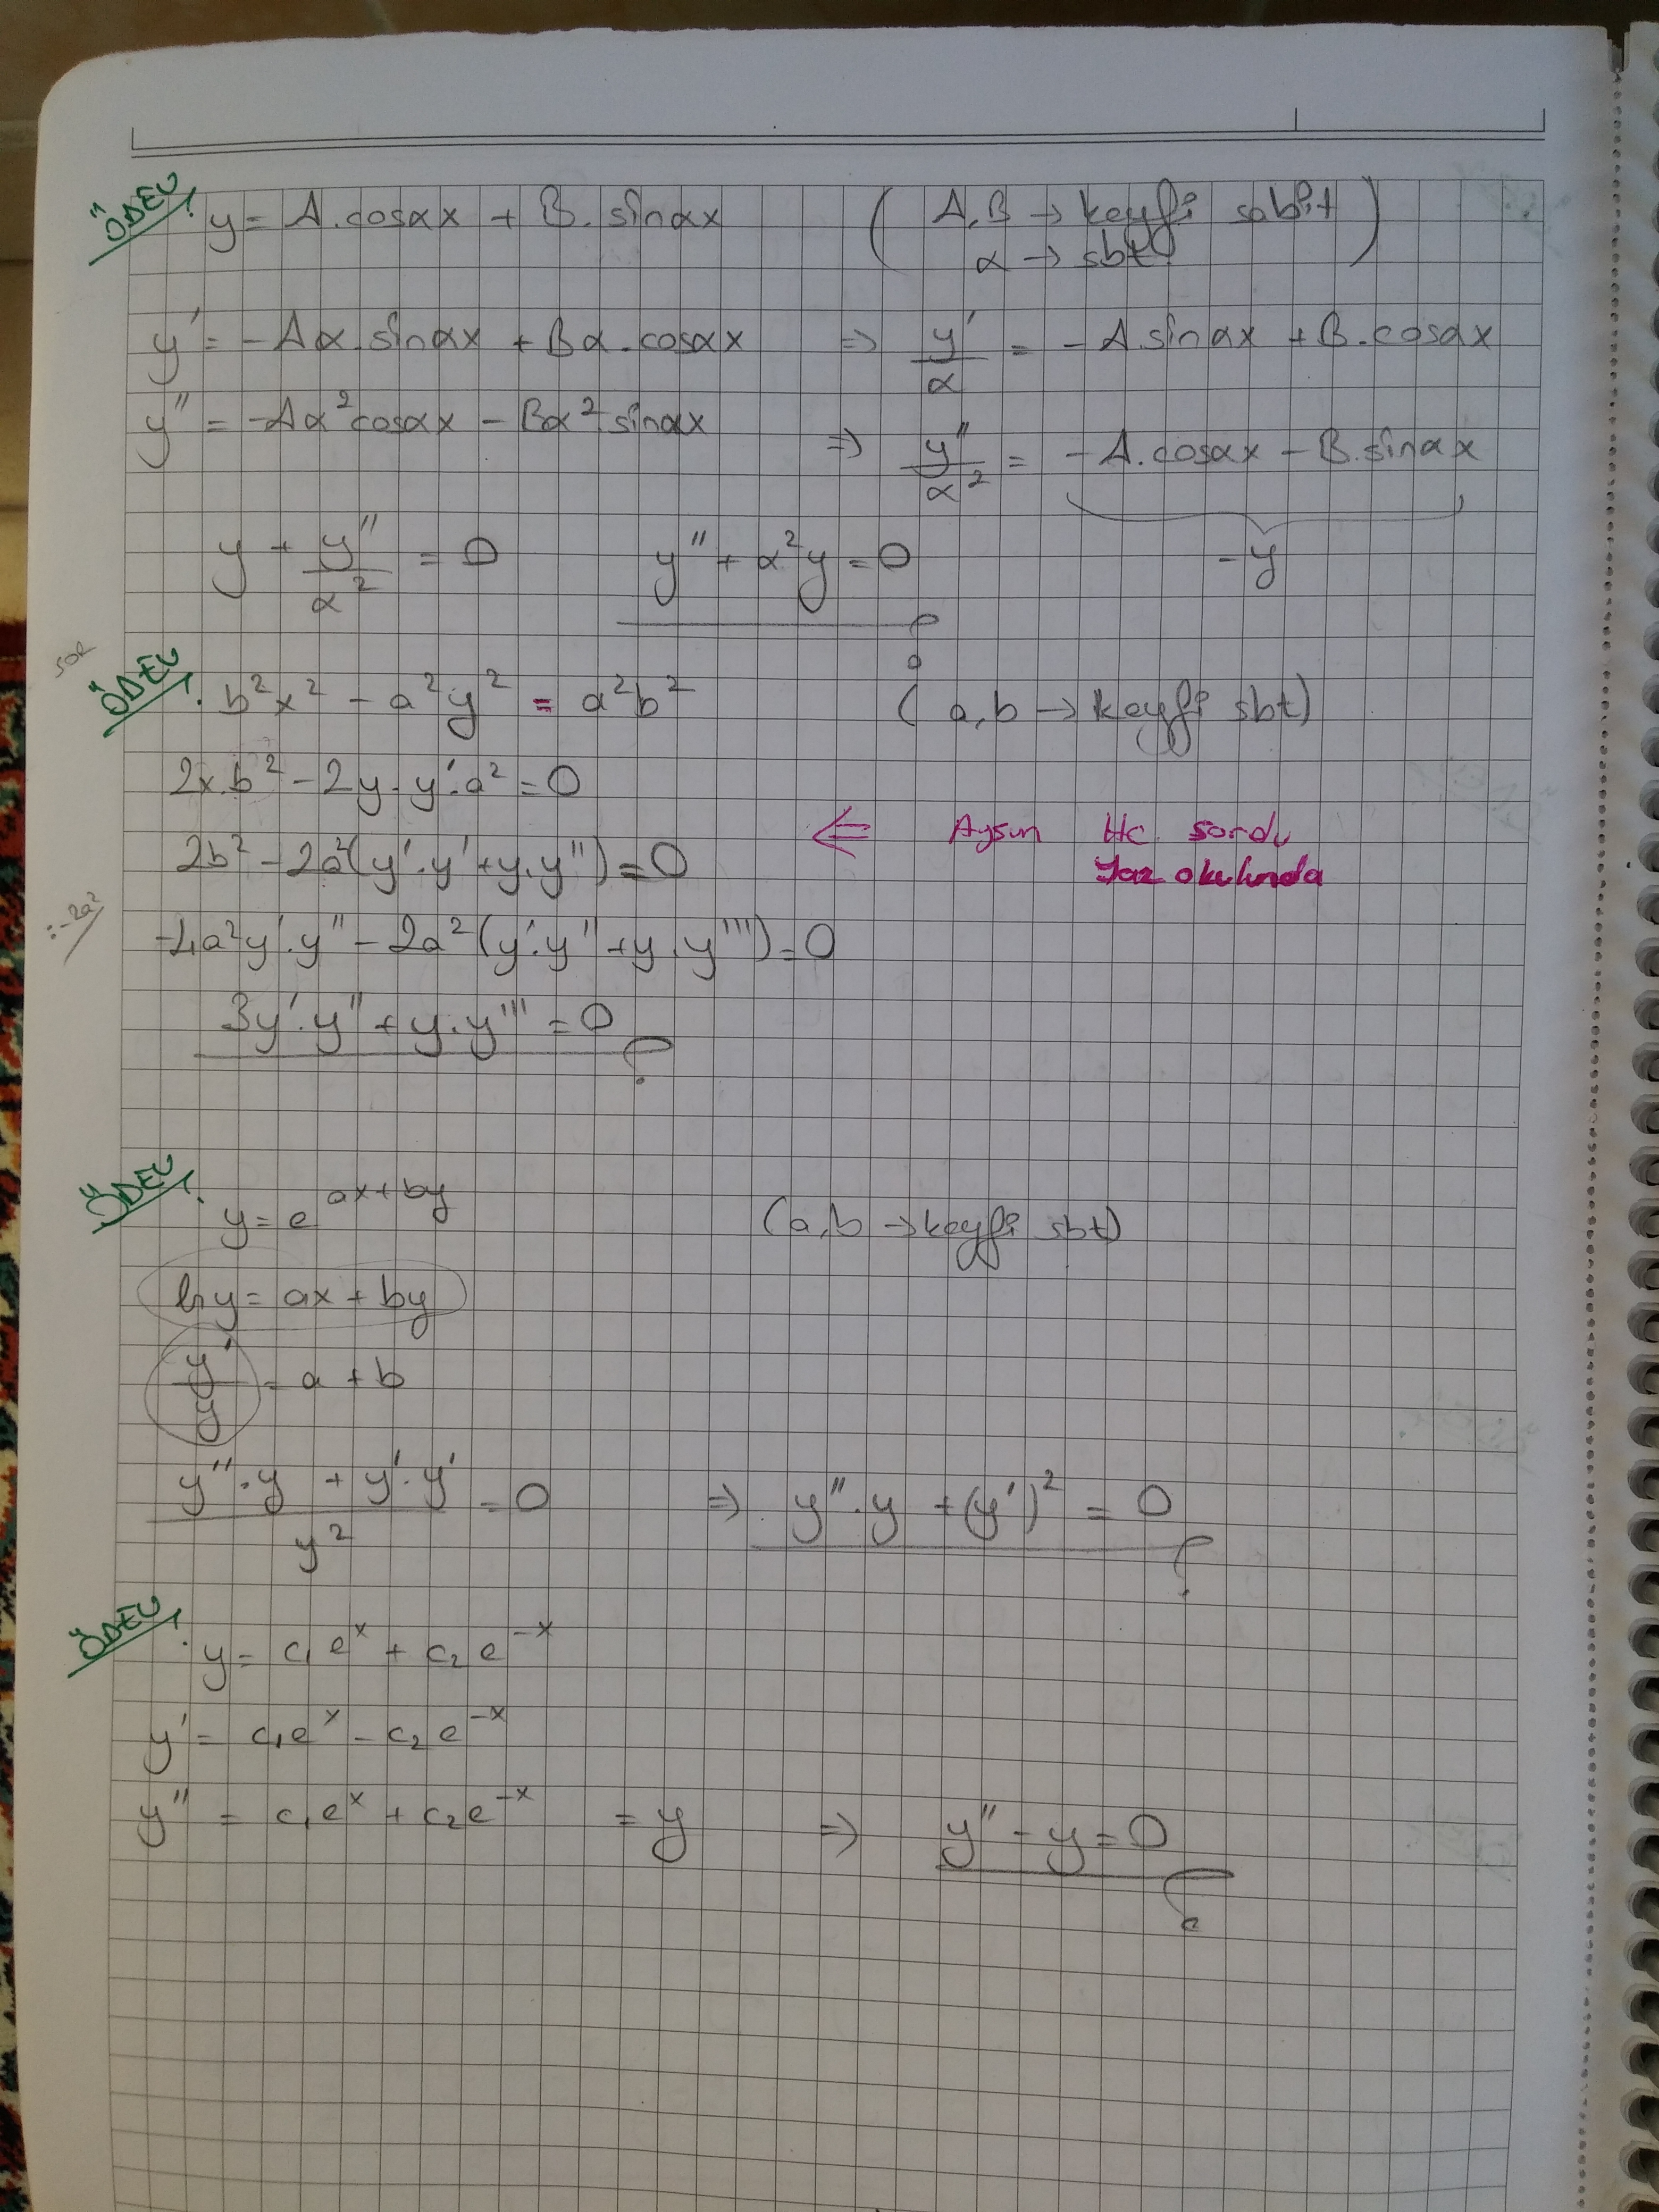 ÖDEV: y = A.cosαx + B.sinαx (A,B → keyfi sabit
α → sbt)
y' = -Aα.sinαx + Bα.cosαx ⇒ y'/α = -A sinαx + B.cosαx
y'' = -Aα²cosαx - Bα².sinαx ⇒ y''/α² = -A.cosαx - B.sinαx
y + y''/α² = 0 y'' + α²y = 0 -y
sor
ÖDEV: b²x² - a²y² = a²b² (a,b → keyfi sbt)
2x.b² - 2y.y'.a² = 0
⇐ Aysun Hc. sordu
Yaz okulunda
2b² - 2a²(y'.y' + y.y'') = 0
:-2a² -4a²y'.y'' - 2a²(y'.y'' + y.y''') = 0
3y'.y'' + y.y''' = 0
ÖDEV: y = e^(ax+by) (a,b → keyfi sbt)
lny = ax + by
y'/y = a + b
(y''.y + y'.y')/y² = 0 ⇒ y''.y + (y')² = 0
ÖDEV: y = c₁e^x + c₂e^-x
y' = c₁e^x - c₂e^-x
y'' = c₁e^x + c₂e^-x = y ⇒ y'' - y = 0